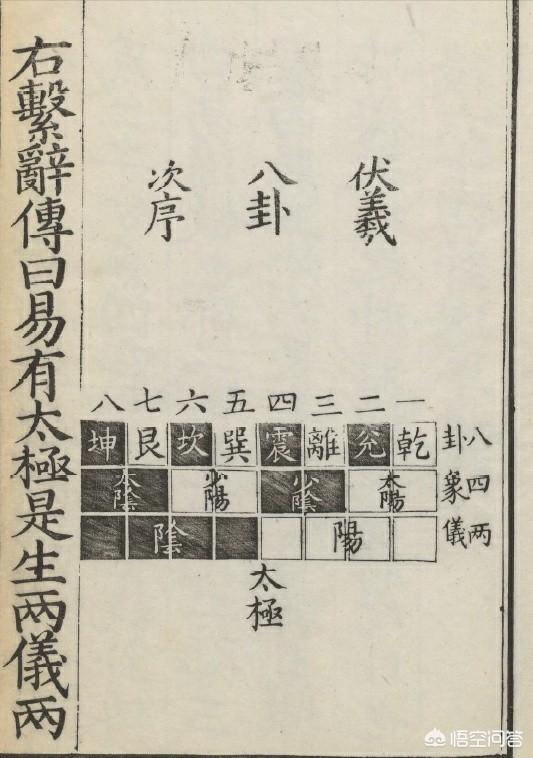 伏羲
八卦
次序
一二三四五六七八
八卦
乾兊離震巽坎艮坤
四象
太陽 少陰 少陽 太陰
两儀
陽 陰
太極
右繫辭傳曰易有太極是生两儀两
悟空问答